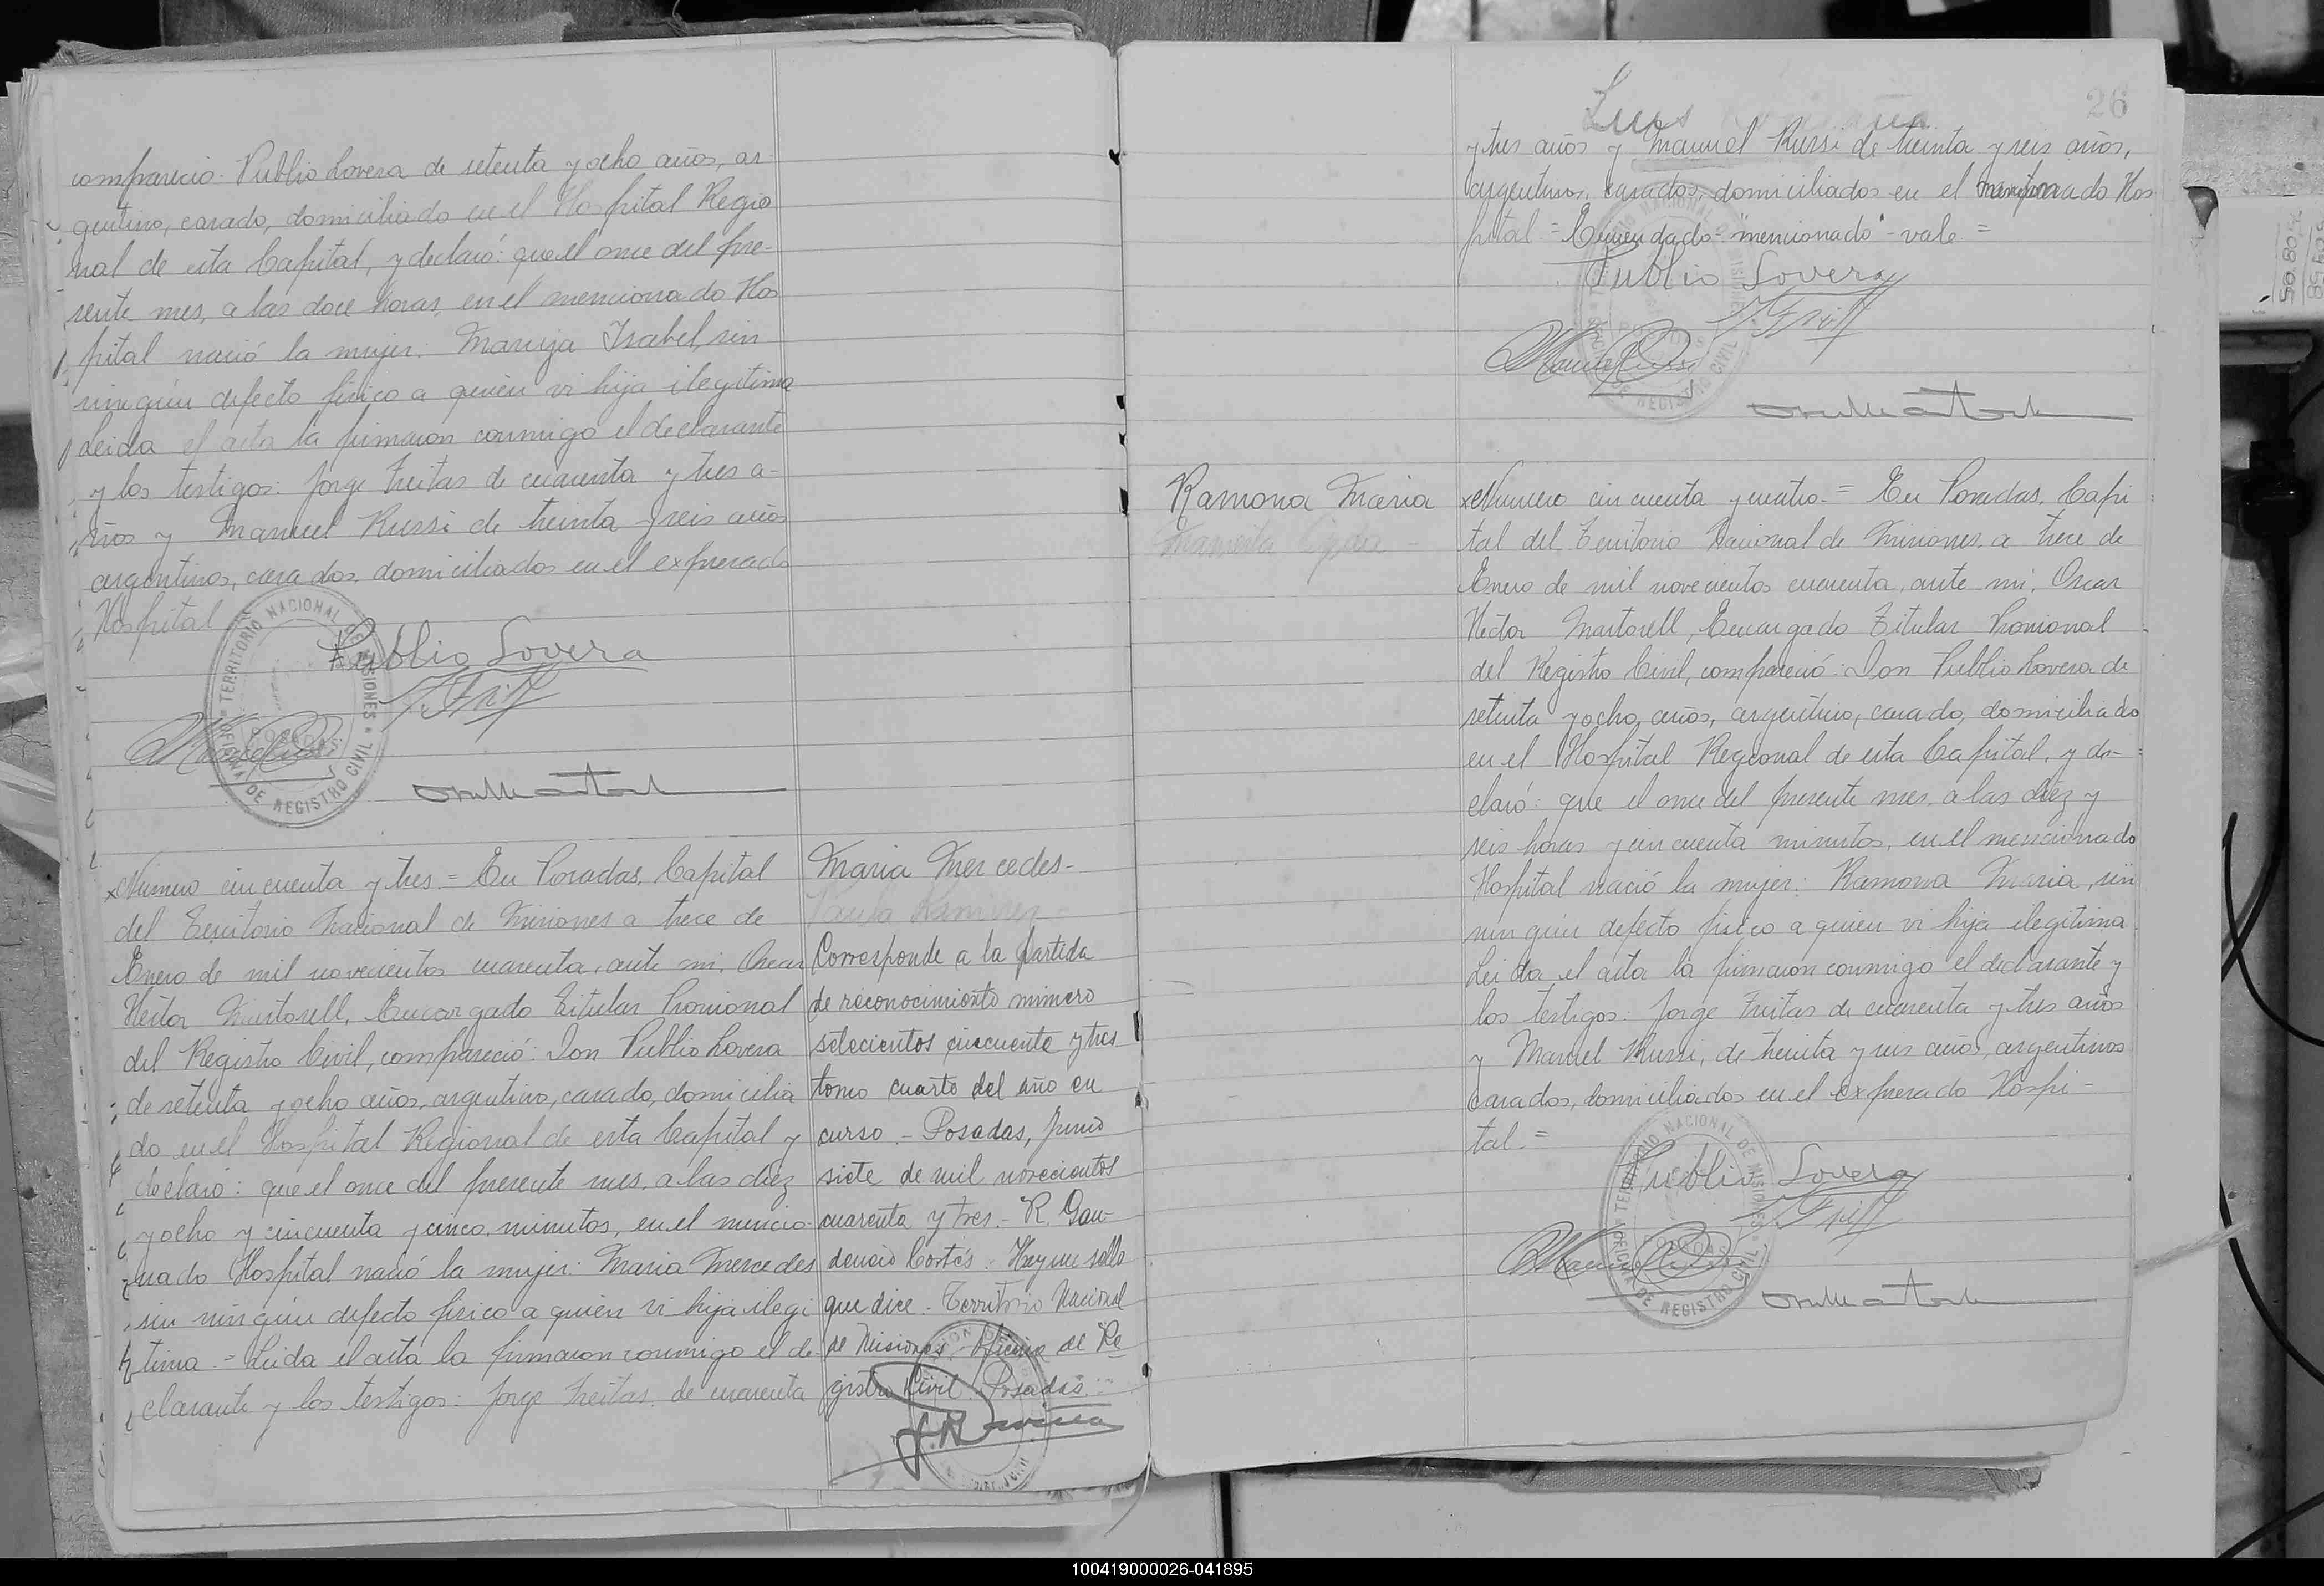 compareció Publio Lovera de setenta y ocho años, ar
gentino, casado, domiciliado en el Hospital Regio
nal de esta Capital, y declaró: que el once del pre-
sente mes, a las doce horas, en el mencionado Hos
pital nació la mujer: Mariza Isabel, sin
ningún defecto físico a quien vi hija ilegitima
Leida el acta la firmaron conmigo el declarante
y los testigos: Jorge Freitas de cuarenta y tres a-
ños y Manuel Russi de treinta y seis años
argentinos, casados, domiciliados en el expresado
Hospital
Publio Lovera
TERRITORIO NACIONAL DE MISIONES
POSADAS
OFICINA DE REGISTRO CIVIL
x Numero cincuenta y tres = En Posadas, Capital
del Territorio Nacional de Misiones a trece de
Enero de mil novecientos cuarenta, ante mi, Oscar
Héctor Martorell, Encargado Titular Provisional
del Registro Civil, compareció: Don Publio Lovera
de setenta y ocho años, argentino, casado, domicilia
do en el Hospital Regional de esta Capital y
declaró: que el once del presente mes, a las diez
y ocho y cincuenta y cinco minutos, en el mencio-
nado Hospital nació la mujer: Maria Mercedes
sin ningún defecto fisico a quien vi hija ilegi
tima = Leida el acta la firmaron conmigo el de-
clarante y los testigos: Jorge Freitas, de cuarenta
Maria Mercedes-
Ramirez
Corresponde a la partida
de reconocimiento número
setecientos cincuenta y tres
tomo cuarto del año en
curso.- Posadas, Junio
siete de mil novecientos
cuarenta y tres.- R. Gau-
dencio Cortés.- Hay un sello
que dice - Territorio Nacional
de Misiones. Oficina de Re
gistro Civil. Posadas.-
26
Luis
y tres años y Manuel Russi de treinta y seis años,
argentinos, casados, domiciliados en el mencionado Hos
pital = Emendado "mencionado" - vale =
Publio Lovera
Manuel Russi
Ramona Maria
x Numero cincuenta y cuatro = En Posadas, Capi
tal del Territorio Nacional de Misiones, a trece de
Enero de mil novecientos cuarenta, ante mi, Oscar
Héctor Martorell, Encargado Titular Provisional
del Registro Civil, compareció: Don Publio Lovera de
setenta y ocho, años, argentino, casado, domiciliado
en el Hospital Regional de esta Capital, y de-
claró: que el once del presente mes, a las diez y
seis horas y cincuenta minutos, en el mencionado
Hospital nació la mujer: Ramona Maria, sin
ningún defecto fisico a quien vi hija ilegitima
Leida el acta la firmaron conmigo el declarante y
los testigos: Jorge Freitas de cuarenta y tres años
y Manuel Russi, de treinta y seis años, argentinos
casados, domiciliados en el expresado Hospi-
tal =
Publio Lovera
TERRITORIO NACIONAL DE MISIONES
POSADAS
OFICINA DE REGISTRO CIVIL
100419000026-041895